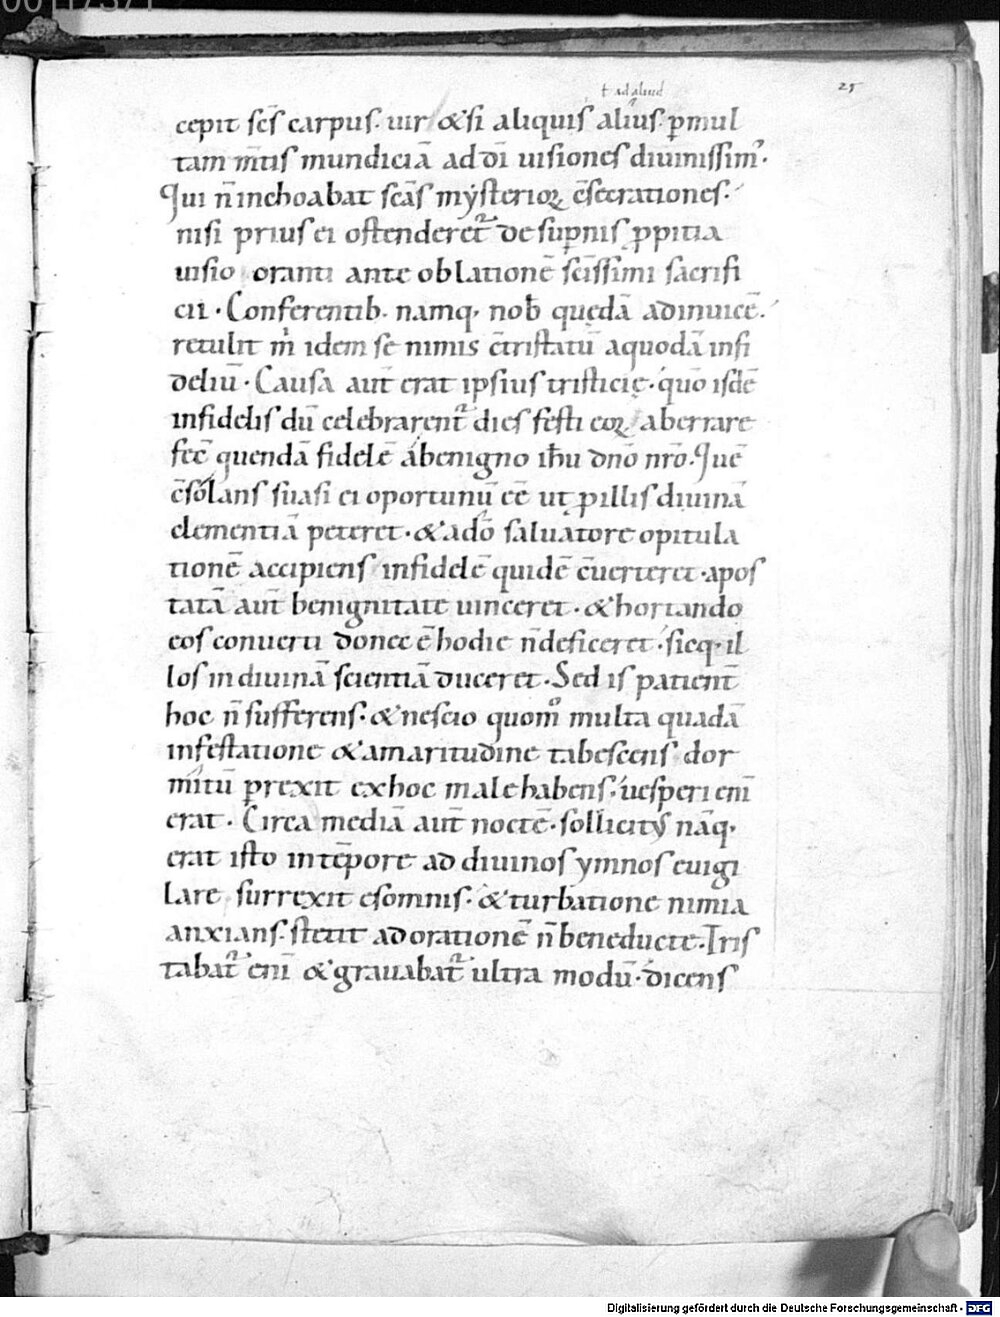 00117371
ł ad aliud
25
cepit sc̄s carpus. uir &si aliquis alius. ꝑmul
tam m̄tis mundiciā ad dī uisiones diuinissimꝰ.
Qui n̄ inchoabat scās mẏsterioꝝ c̄secrationes.
nisi prius ei ostenderet᷑ de suꝑnis ꝓpitia
uisio oranti ante oblationē sc̄issimi sacrifi
cii. Conferentib. namq. nob̄ quędā adinuicē.
retulit m̍ idem se nimis c̄tristatū aquodā infi
deliū. Causa aut̄ erat ipsius tristicię. quo isdē
infidelis dū celebrarent᷑ dies festi eoꝝ aberrare
fec̄ quendā fidelē abenigno ih̄u dn̄o nr̄o. Quē
c̄solans suasi ei oportunū ēē ut ꝑ illis diuinā
clementiā peteret. & adō saluatore opitula
tionē accipiens infidelē quidē c̄uerteret. apos
tatā aut̄ benignitate uinceret. & hortando
eos conuerti donec ē hodie n̄ deficeret. sicq. il
los in diuinā scientiā duceret. Sed is patient̄
hoc n̄ sufferens. & nescio quom̊ multa quadā
infestatione & amaritudine tabescens dor
mitū ꝑrexit exhoc male habens. uesperi eni̅
erat. Circa mediā aut̄ noctē. sollicitꝰ nāq.
erat isto in tēpore ad diuinos ymnos euigi
lare surrexit esomnis. & turbatione nimia
anxians. stetit ad orationē n̄ beneducte. Iris
tabat᷑ eni̅ & grauabat᷑ ultra modū. dicens
Digitalisierung gefördert durch die Deutsche Forschungsgemeinschaft - DFG